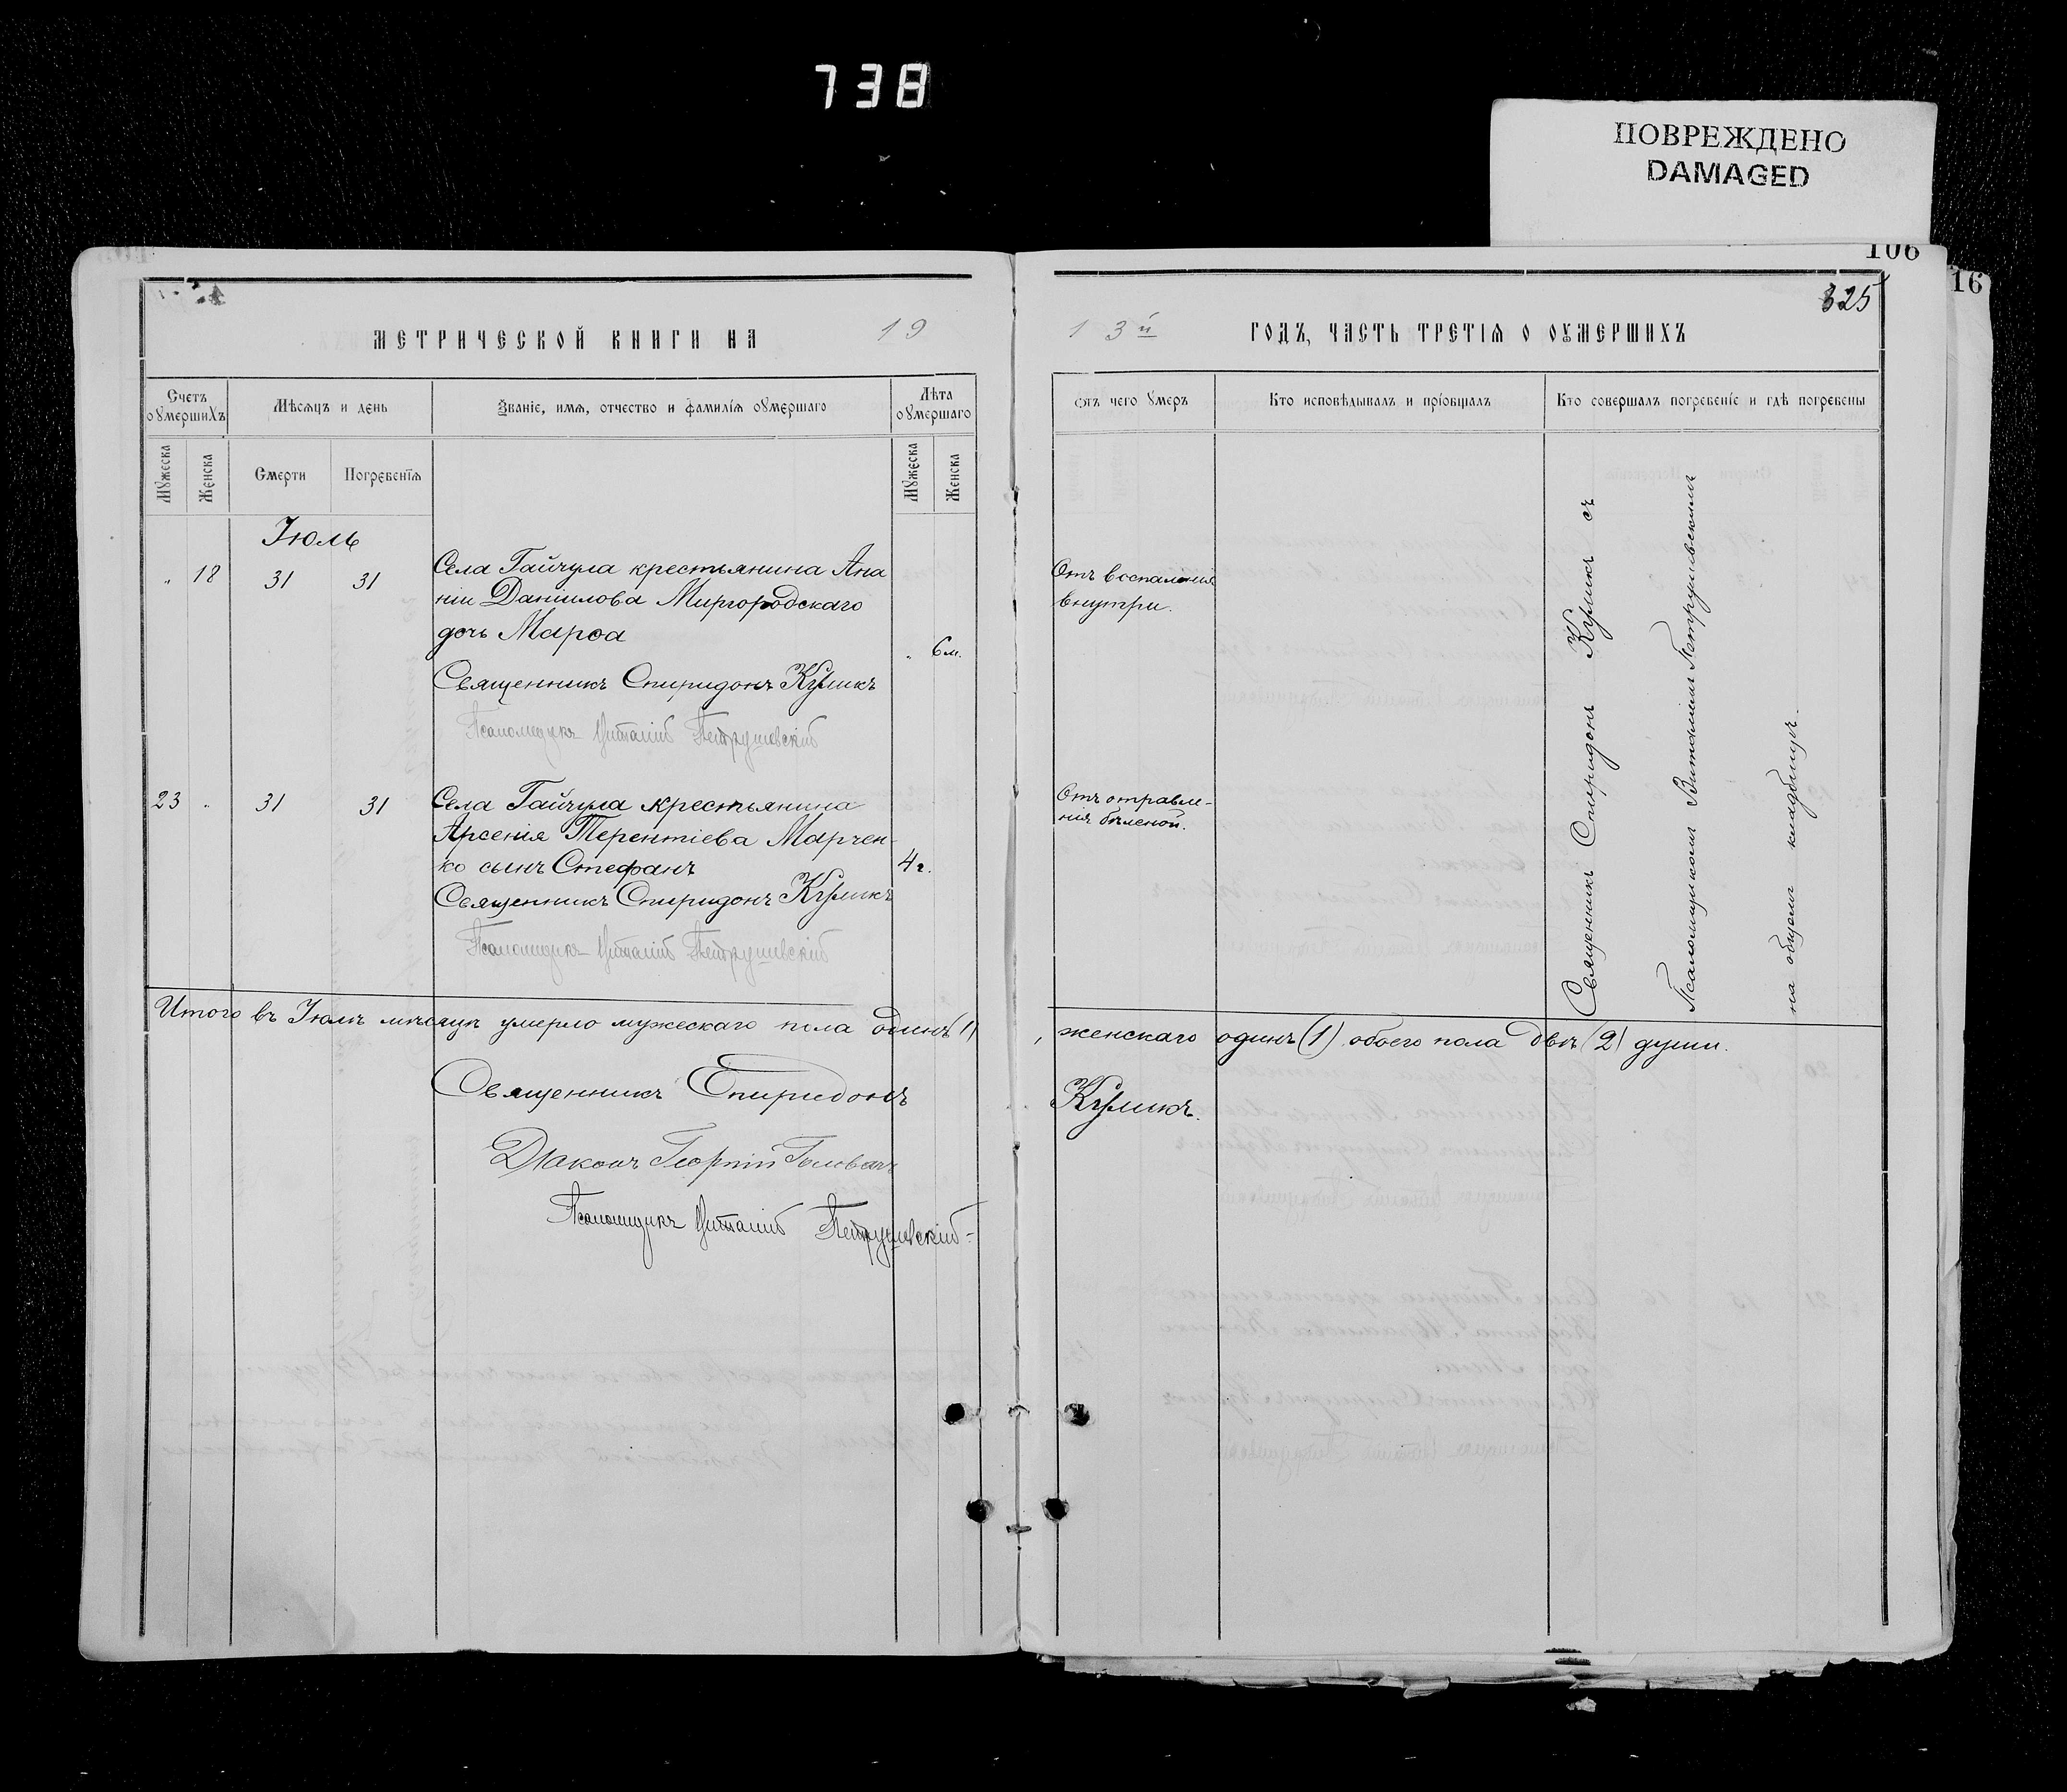 738
ПОВРЕЖДЕНО
DAMAGED
106
16
325
МЕТРИЧЕСКОЙ КНИГИ НА 19
13й ГОДЪ, ЧАСТЬ ТРЕТІЯ О ОУМЕРШИХЪ
Счетъ оумершихъ
Мѣсяцъ и день
Званіе, имя, отчество и фамилія оумершаго
Лѣта оумершаго
Отъ чего умеръ
Кто исповѣдывалъ и пріобщалъ
Кто совершалъ погребеніе и гдѣ погребены
Мужеска
Женска
Смерти
Погребенія
Мужеска
Женска
Іюль
" 18 31 31
Села Гайчула крестьянина Ана
ніи Даніилова Миргородскаго
дочь Марѳа
" 6 м.
Отъ воспаленія
внутри.
Священникъ Спиридонъ Куликъ
Псаломщикъ Виталій Петрушевскій
23 " 31 31
Села Гайчула крестьянина
Арсенія Терентіева Марчен-
ко сынъ Стефанъ
4 г.
Отъ отравле-
нія бѣленой.
Священникъ Спиридонъ Куликъ
Псаломщикъ Виталій Петрушевскій
Священникъ Спиридонъ Куликъ съ
Псаломщикомъ Виталіемъ Петрушевскимъ
на общемъ кладбищѣ.
Итого въ Іюлѣ мѣсяцѣ умерло мужескаго пола одинъ (1)
, женскаго одинъ (1) обоего пола двѣ (2) души.
Священникъ Спиридонъ Куликъ.
Діаконъ Георгій Головань
Псаломщикъ Виталій Петрушевскій